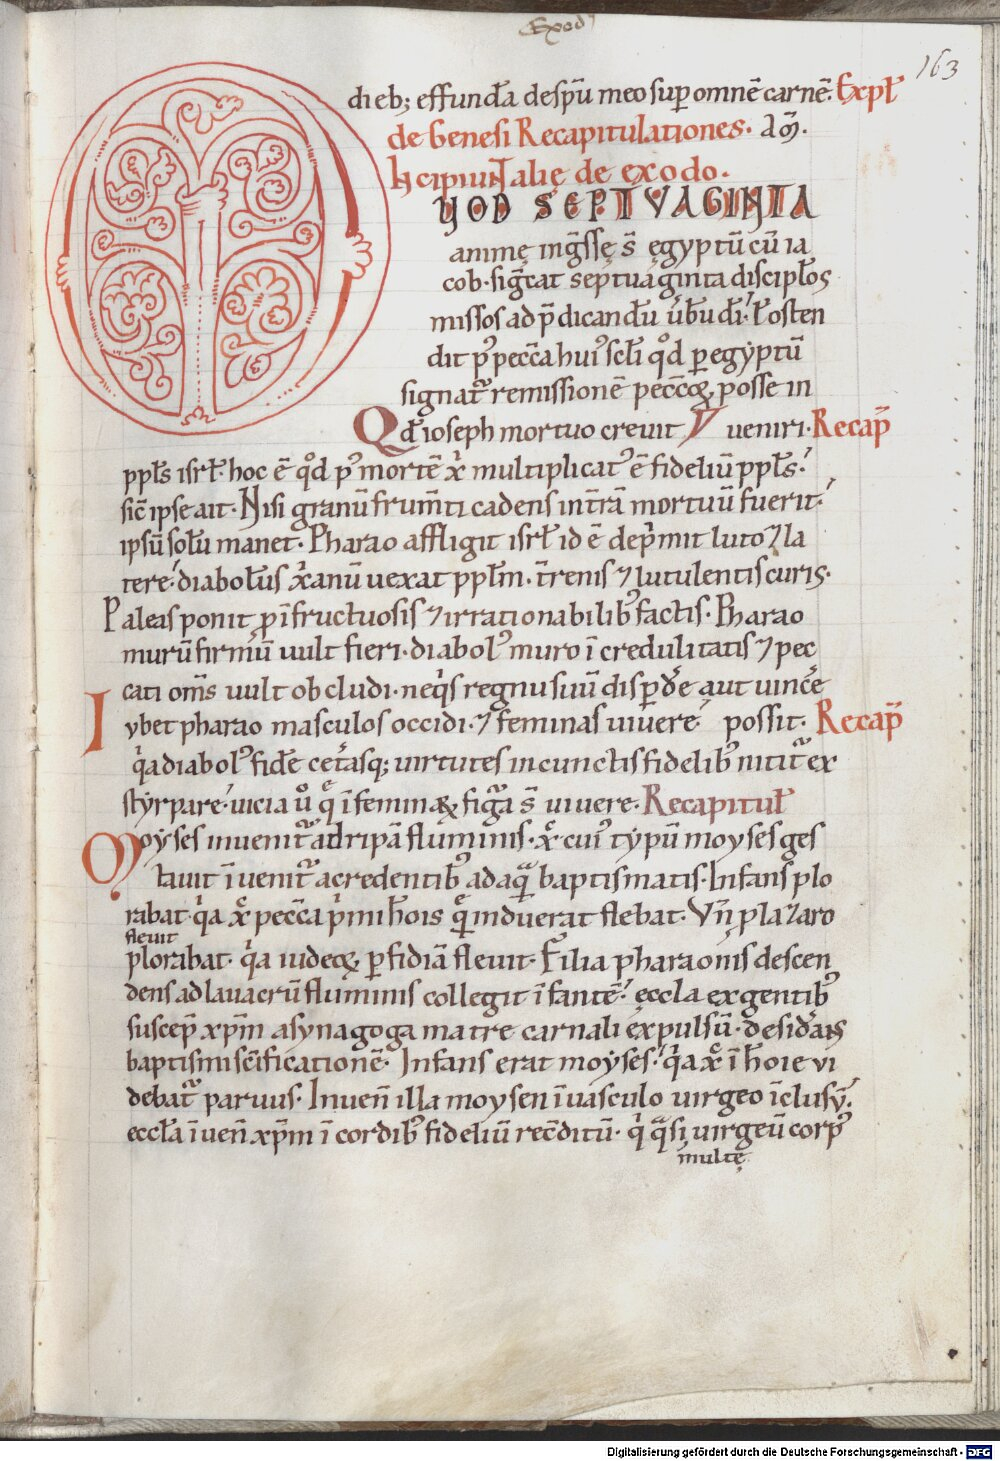 Exod
163
dieb; effundā de spū meo sup omnē carnē. Expł
de Genesi Recapitulationes. am̄.
Incipiunt alię de exodo.
QUOD SEPTUAGINTA
animę ingssę s̄ ęgyptū cū ia
cob. sigcat septuaginta discipłos
missos ad p̄dicandū ūbū dī. ł osten
dit pꝰ pecc̄a huiꝰ scłi qd̊ per egyptū
signat᷑ remissionē pecc̄oꝝ posse in
Qd̄ ioseph mortuo crevit ueniri. Recap̄
ppłs isrł. hoc ē qd̊ pꝰ mortē xp̄i multiplicatꝰ ē fideliū ppłs.
sic̄ ipse ait. Nisi granū frum̄ti cadens in t̄rā mortuū fuerit.
ipsū solū manet. Pharao affligit isrł id ē dep̄mit luto ⁊ la
tere. diabolus xp̄ianū uexat ppłm. t̄renis ⁊ lutulentis curis.
Paleas ponit p̄ īfructuosis ⁊ irrationabilibꝰ factis. Pharao
murū firmū uult fieri. diabolꝰ muro īcredulitatis ⁊ pec
cati om̄s uult obcludi. neq̇s regnū suū disp̄d̄e aut uinc̄e
Iubet pharao masculos occidi. ⁊ feminas uiuere possit. Recap̄
q̇a diabolꝰ fidē cet̄asq; uirtutes in cunctis fidelibꝰ nitit᷑ ex
styrpare. uicia ů q̄ ī feminaꝝ figura s̄ uiuere. Recapituł
Moyses inuenit᷑ ad ripā fluminis. xp̄c cuiꝰ typū moyses ges
tauit īuenit᷑ a credentibꝰ ad aquā baptismatis. Infans plo
rabat. q̇a xp̄c pecc̄a ṗmi hōis q̄ induerat flebat. Vn̄ pla7aro
fleuit
plorabat. q̇a iudeoꝝ p̄fidiā fleuit. Filia pharaonis descen
dens ad lauacrū fluminis collegit īfantē. ęccła ex gentibꝰ
suscep̄ xp̄m a synagoga matre carnali expulsū. desid̄ans
baptismi sc̄ificationē. Infans erat moyses. q̇a xp̄c ī hōie vi
debat᷑ paruus. Inuen̄ illa moysen ī uasculo uirgeo īclusū.
eccła īuen̄ xp̄m ī cordibꝰ fideliū recōditū. q̇ q̄si uirgeū corpꝰ
multę
Digitalisierung gefördert durch die Deutsche Forschungsgemeinschaft - DFG